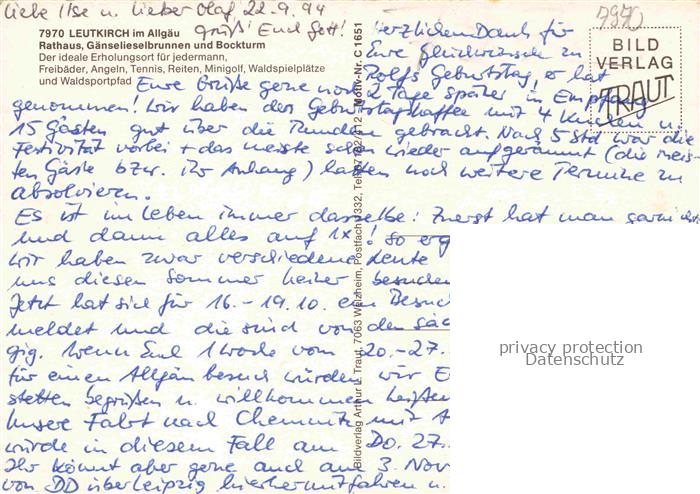 Liebe Ilse u. lieber Olaf 22.9.94
grüß' Euch Gott!
7970
7970 LEUTKIRCH im Allgäu
Rathaus, Gänselieselbrunnen und Bockturm
Der ideale Erholungsort für jedermann,
Freibäder, Angeln, Tennis, Reiten, Minigolf, Waldspielplätze
und Waldsportpfad
Herzlichen Dank für
Eure Glückwünsche zu
Rolfs Geburtstag, er hat
BILD
VERLAG
TRAUT
Motiv-Nr. C 1651
Bildverlag Arthur F. Traut, 7063 Welzheim, Postfach 1332
Eure Grüße gerne noch 2 Tage später in Empfang
genommen! Wir haben den Geburtstagskaffee mit 4 Kuchen u.
15 Gästen gut über die Runden gebracht. Nach 5 Std war die
Festivität vorbei + das meiste schon wieder aufgeräumt (die meis-
ten Gäste bzw. ihr Anhang) hatten noch weitere Termine zu
absolvieren.
Es ist im Leben immer dasselbe: Zuerst hat man garnichts
und dann alles auf 1x! So erg
Wir haben zwar verschiedene Leute
uns diesen Sommer besuchen
Jetzt hat sich für 16. - 19.10. ein Besuc
meldet und die sind von den Säc
gig. Wenn Euch 1 Woche vom 20.-27.
für einen Allgäubesuch würden wir E
stetten begrüßen u. willkommen heißen
Unsere Fahrt nach Chemnitz mit A
würde in diesem Fall am Do. 27.
Ihr könnt aber gerne auch am 3. Nov
von DD über Leipzig hierher mitfahren u.
privacy protection
Datenschutz